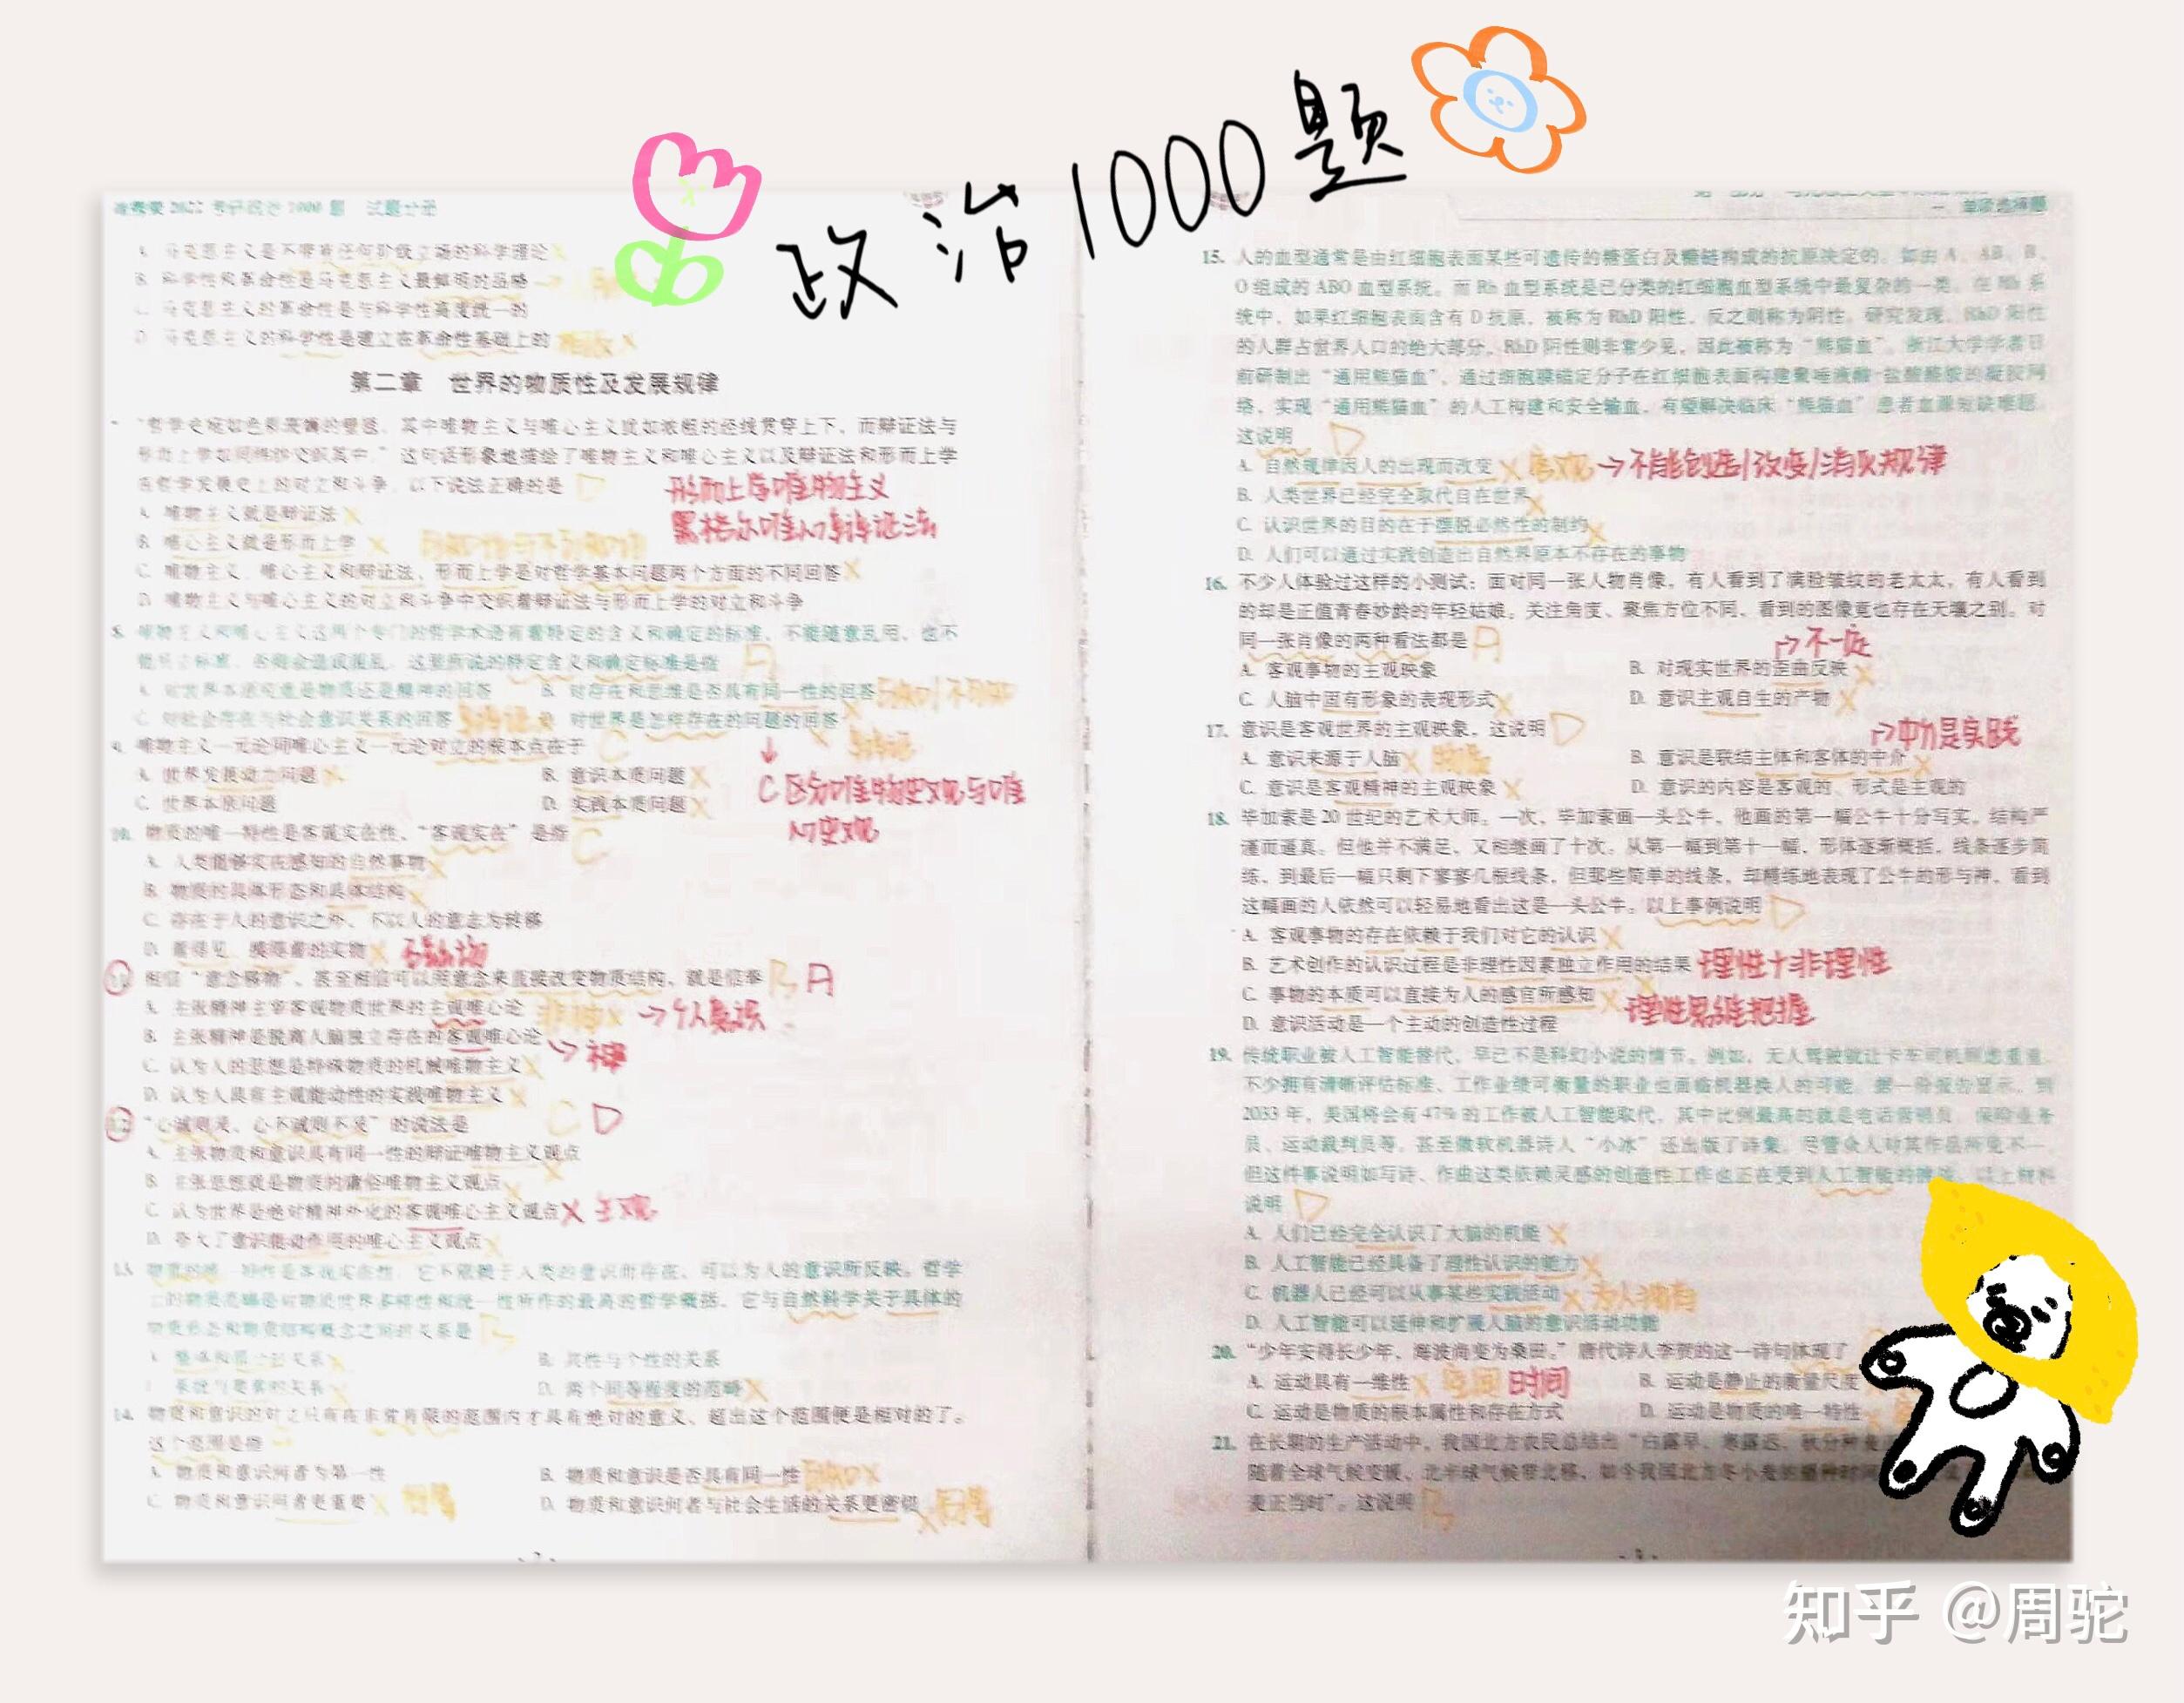 政治1000题
2022考研政治1000题 试题分册
A. 马克思主义是不带有任何阶级立场的科学理论
B. 科学性和革命性是马克思主义最鲜明的品格
C. 马克思主义的革命性是与科学性高度统一的
D. 马克思主义的科学性是建立在革命性基础上的
第二章 世界的物质性及发展规律
其中唯物主义与唯心主义犹如浓粗的经线贯穿上下，而辩证法与
形而上学如同纬纱交织其中。”这句话形象地描绘了唯物主义和唯心主义以及辩证法和形而上学
在哲学发展史上的对立和斗争。以下说法正确的是 D
形而上学唯物主义
黑格尔唯心辩证法
A. 唯物主义就是辩证法
B. 唯心主义就是形而上学
C. 唯物主义、唯心主义和辩证法、形而上学是对哲学基本问题两个方面的不同回答
D. 唯物主义与唯心主义的对立和斗争中交织着辩证法与形而上学的对立和斗争
8. 唯物主义和唯心主义这两个专门的哲学术语有着特定的含义和确定的标准，不能随意乱用，也不
能另立标准，否则会造成混乱。这里所说的特定含义和确定标准是指 A
A. 对世界本质究竟是物质还是精神的回答 B. 对存在和思维是否具有同一性的回答
C. 对社会存在与社会意识关系的回答 D. 对世界是怎样存在的问题的回答
C区分唯物史观与唯
心史观
9. 唯物主义一元论同唯心主义一元论对立的根本点在于 C
A. 世界发展动力问题 B. 意识本质问题
C. 世界本质问题 D. 实践本质问题
10. 物质的唯一特性是客观实在性，“客观实在”是指 C
A. 人类能够实在感知的自然事物
B. 物质的具体形态和具体结构
C. 存在于人的意识之外、不以人的意志为转移
D. 看得见、摸得着的实物
11. 相信“意念移物”、甚至相信可以用意念来直接改变物质结构，就是信奉 B A
A. 主张精神主宰客观物质世界的主观唯心论
B. 主张精神是脱离人脑独立存在的客观唯心论 → 神
C. 认为人的思想是特殊物质的机械唯物主义
D. 认为人具有主观能动性的实践唯物主义
12. “心诚则灵、心不诚则不灵”的说法是 C D
A. 主张物质和意识具有同一性的辩证唯物主义观点
B. 主张思想就是物质的庸俗唯物主义观点
C. 认为世界是绝对精神外化的客观唯心主义观点 X 主观
D. 夸大了意识能动作用的唯心主义观点
13. 物质的唯一特性是客观实在性，它不依赖于人类的意识而存在，可以为人的意识所反映。哲学
上的物质范畴是对物质世界多样性和统一性所作的最高的哲学概括，它与自然科学关于具体的
物质形态和物质结构概念之间的关系是 B
B. 共性与个性的关系
C. 系统与要素的关系 D. 两个同等程度的范畴
14. 物质和意识的对立只有在非常有限的范围内才具有绝对的意义，超出这个范围便是相对的了。
这个范围是指
A. 物质和意识何者为第一性 B. 物质和意识是否具有同一性
C. 物质和意识何者更重要 D. 物质和意识何者与社会生活的关系更密切
一、单项选择题
15. 人的血型通常是由红细胞表面某些可遗传的糖蛋白及糖链构成的抗原决定的。如由 A、AB、B、
O 组成的 ABO 血型系统。而 Rh 血型系统是已分类的红细胞血型系统中最复杂的一类。在 Rh 系
统中，如果红细胞表面含有 D 抗原，被称为 RhD 阳性，反之则称为阴性。研究发现，RhD 阳性
的人群占世界人口的绝大部分，RhD 阴性则非常少见，因此被称为“熊猫血”。浙江大学学者日
前研制出“通用熊猫血”，通过细胞膜锚定分子在红细胞表面构建
络，实现“通用熊猫血”的人工构建和安全输血，有望解决临床“熊猫血”患者血源短缺难题。
这说明 D
A. 自然规律因人的出现而改变 X 客观 → 不能创造/改变/消灭规律
B. 人类世界已经完全取代自在世界
C. 认识世界的目的在于摆脱必然性的制约
D. 人们可以通过实践创造出自然界原本不存在的事物
16. 不少人体验过这样的小测试：面对同一张人物肖像，有人看到了满脸皱纹的老太太，有人看到
的却是正值青春妙龄的年轻姑娘。关注角度、聚焦方位不同，看到的图像竟也存在天壤之别。对
同一张肖像的两种看法都是 A
不一定
A. 客观事物的主观映象 B. 对现实世界的歪曲反映
C. 人脑中固有形象的表现形式 D. 意识主观自生的产物
17. 意识是客观世界的主观映象，这说明 D
中介是实践
A. 意识来源于人脑 B. 意识是联结主体和客体的中介
C. 意识是客观精神的主观映象 D. 意识的内容是客观的、形式是主观的
18. 毕加索是 20 世纪的艺术大师。一次，毕加索画一头公牛，他画的第一幅公牛十分写实，结构严
谨而逼真。但他并不满足，又相继画了十次。从第一幅到第十一幅，形体逐渐概括，线条逐步简
练，到最后一幅只剩下寥寥几根线条，但那些简单的线条，却精练地表现了公牛的形与神，看到
这幅画的人依然可以轻易地看出这是一头公牛。以上事例说明 D
A. 客观事物的存在依赖于我们对它的认识
B. 艺术创作的认识过程是非理性因素独立作用的结果 理性+非理性
C. 事物的本质可以直接为人的感官所感知 理性思维把握
D. 意识活动是一个主动的创造性过程
19. 传统职业被人工智能替代，早已不是科幻小说的情节。例如，无人驾驶就让卡车司机顾虑重重。
不少拥有清晰评估标准、工作业绩可衡量的职业也面临机器换人的可能。据一份报告显示，到
2033 年，美国将会有 47% 的工作被人工智能取代，其中比例最高的就是电话营销员、保险业务
员、运动裁判员等。甚至微软机器诗人“小冰”还出版了诗集。尽管众人对其作品所见不一，
但这件事说明如写诗、作曲这类依赖灵感的创造性工作也正在受到人工智能的挑战。以上材料
说明 D
A. 人们已经完全认识了大脑的机能
B. 人工智能已经具备了理性认识的能力
C. 机器人已经可以从事某些实践活动 X 为人拥有
D. 人工智能可以延伸和扩展人脑的意识活动功能
20. “少年安得长少年，海波尚变为桑田。”唐代诗人李贺的这一诗句体现了
A. 运动具有一维性 时间 B. 运动是静止的衡量尺度
C. 运动是物质的根本属性和存在方式 D. 运动是物质的唯一特性
21. 在长期的生产活动中，我国北方农民总结出“白露早，寒露迟，秋分种麦
随着全球气候变暖，北半球气候带北移，如今我国北方冬小麦的播种时间
麦正当时”。这说明 B
知乎 @周驼